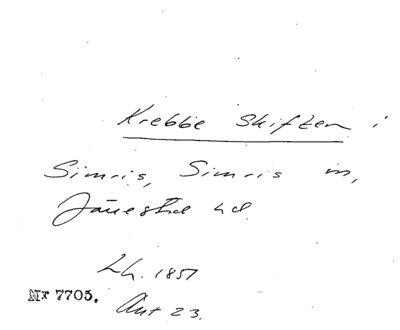 Krebbe Skiften i
Simris, Simris sn,
Järrestad hd
Lh. 1857
Nr 7705.
Ant 23.